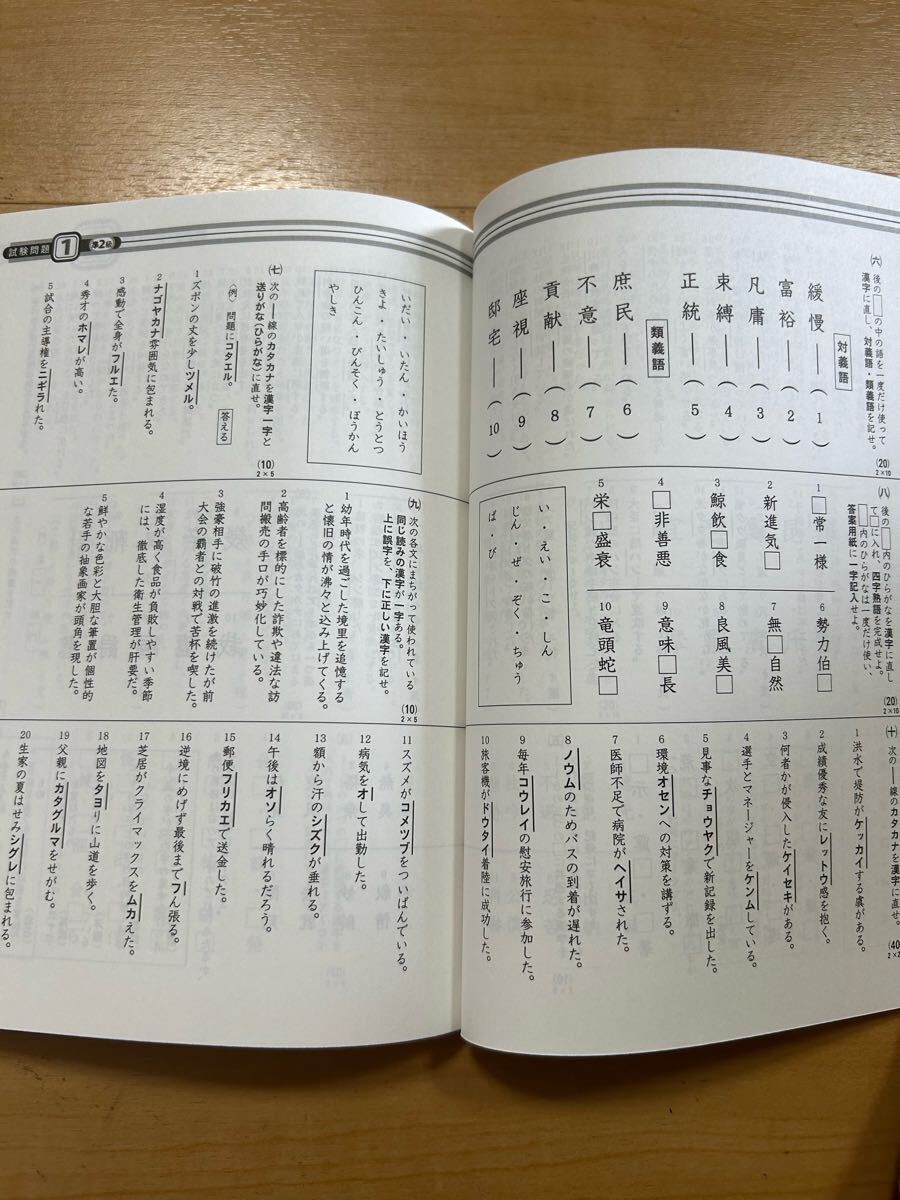 ㈥ 後の□の中の語を一度だけ使って
漢字に直し、対義語・類義語を記せ。
(20)
2×10
対義語
緩慢――(1)
富裕――(2)
凡庸――(3)
束縛――(4)
正統――(5)
類義語
庶民――(6)
不意――(7)
貢献――(8)
座視――(9)
邸宅――(10)
㈧ 後の□内のひらがなを漢字に直し
て□に入れ、四字熟語を完成せよ。
□内のひらがなは一度だけ使い、
答案用紙に一字記入せよ。
(20)
2×10
1 □常一様
2 新進気□
3 鯨飲□食
4 □非善悪
5 栄□盛衰
6 勢力伯□
7 無□自然
8 良風美□
9 意味□長
10 竜頭蛇□
い・えい・こ・しん
じん・ぜ・ぞく・ちゅう
ば・び
㈩ 次の――線のカタカナを漢字に直せ。
(40
2×2
1 洪水で堤防がケッカイする虞がある。
2 成績優秀な友にレットウ感を抱く。
3 何者かが侵入したケイセキがある。
4 選手とマネージャーをケンムしている。
5 見事なチョウヤクで新記録を出した。
6 環境オセンへの対策を講ずる。
7 医師不足で病院がヘイサされた。
8 ノウムのためバスの到着が遅れた。
9 毎年コウレイの慰安旅行に参加した。
10 旅客機がドウタイ着陸に成功した。
試験問題 1 準2級
いだい・いたん・かいほう
きよ・たいしゅう・とうとつ
ひんこん・びんそく・ぼうかん
やしき
㈦ 次の――線のカタカナを漢字一字と
送りがな(ひらがな)に直せ。
〈例〉問題にコタエル。 答える
(10)
2×5
1 ズボンの丈を少しツメル。
2 ナゴヤカナ雰囲気に包まれる。
3 感動で全身がフルエた。
4 秀才のホマレが高い。
5 試合の主導権をニギラれた。
㈨ 次の各文にまちがって使われている
同じ読みの漢字が一字ある。
上に誤字を、下に正しい漢字を記せ。
(10)
2×5
1 幼年時代を過ごした境里を追憶する
と懐旧の情が沸々と込み上げてくる。
2 高齢者を標的にした詐欺や違法な訪
問搬売の手口が巧妙化している。
3 強豪相手に破竹の進激を続けたが前
大会の覇者との対戦で苦杯を喫した。
4 湿度が高く食品が負敗しやすい季節
には、徹底した衛生管理が肝要だ。
5 鮮やかな色彩と大胆な筆置が個性的
な若手の抽象画家が頭角を現した。
11 スズメがコメツブをついばんでいる。
12 病気をオして出勤した。
13 額から汗のシズクが垂れる。
14 午後はオソらく晴れるだろう。
15 郵便フリカエで送金した。
16 逆境にめげず最後までフん張る。
17 芝居がクライマックスをムカえた。
18 地図をタヨりに山道を歩く。
19 父親にカタグルマをせがむ。
20 生家の夏はせみシグレに包まれる。